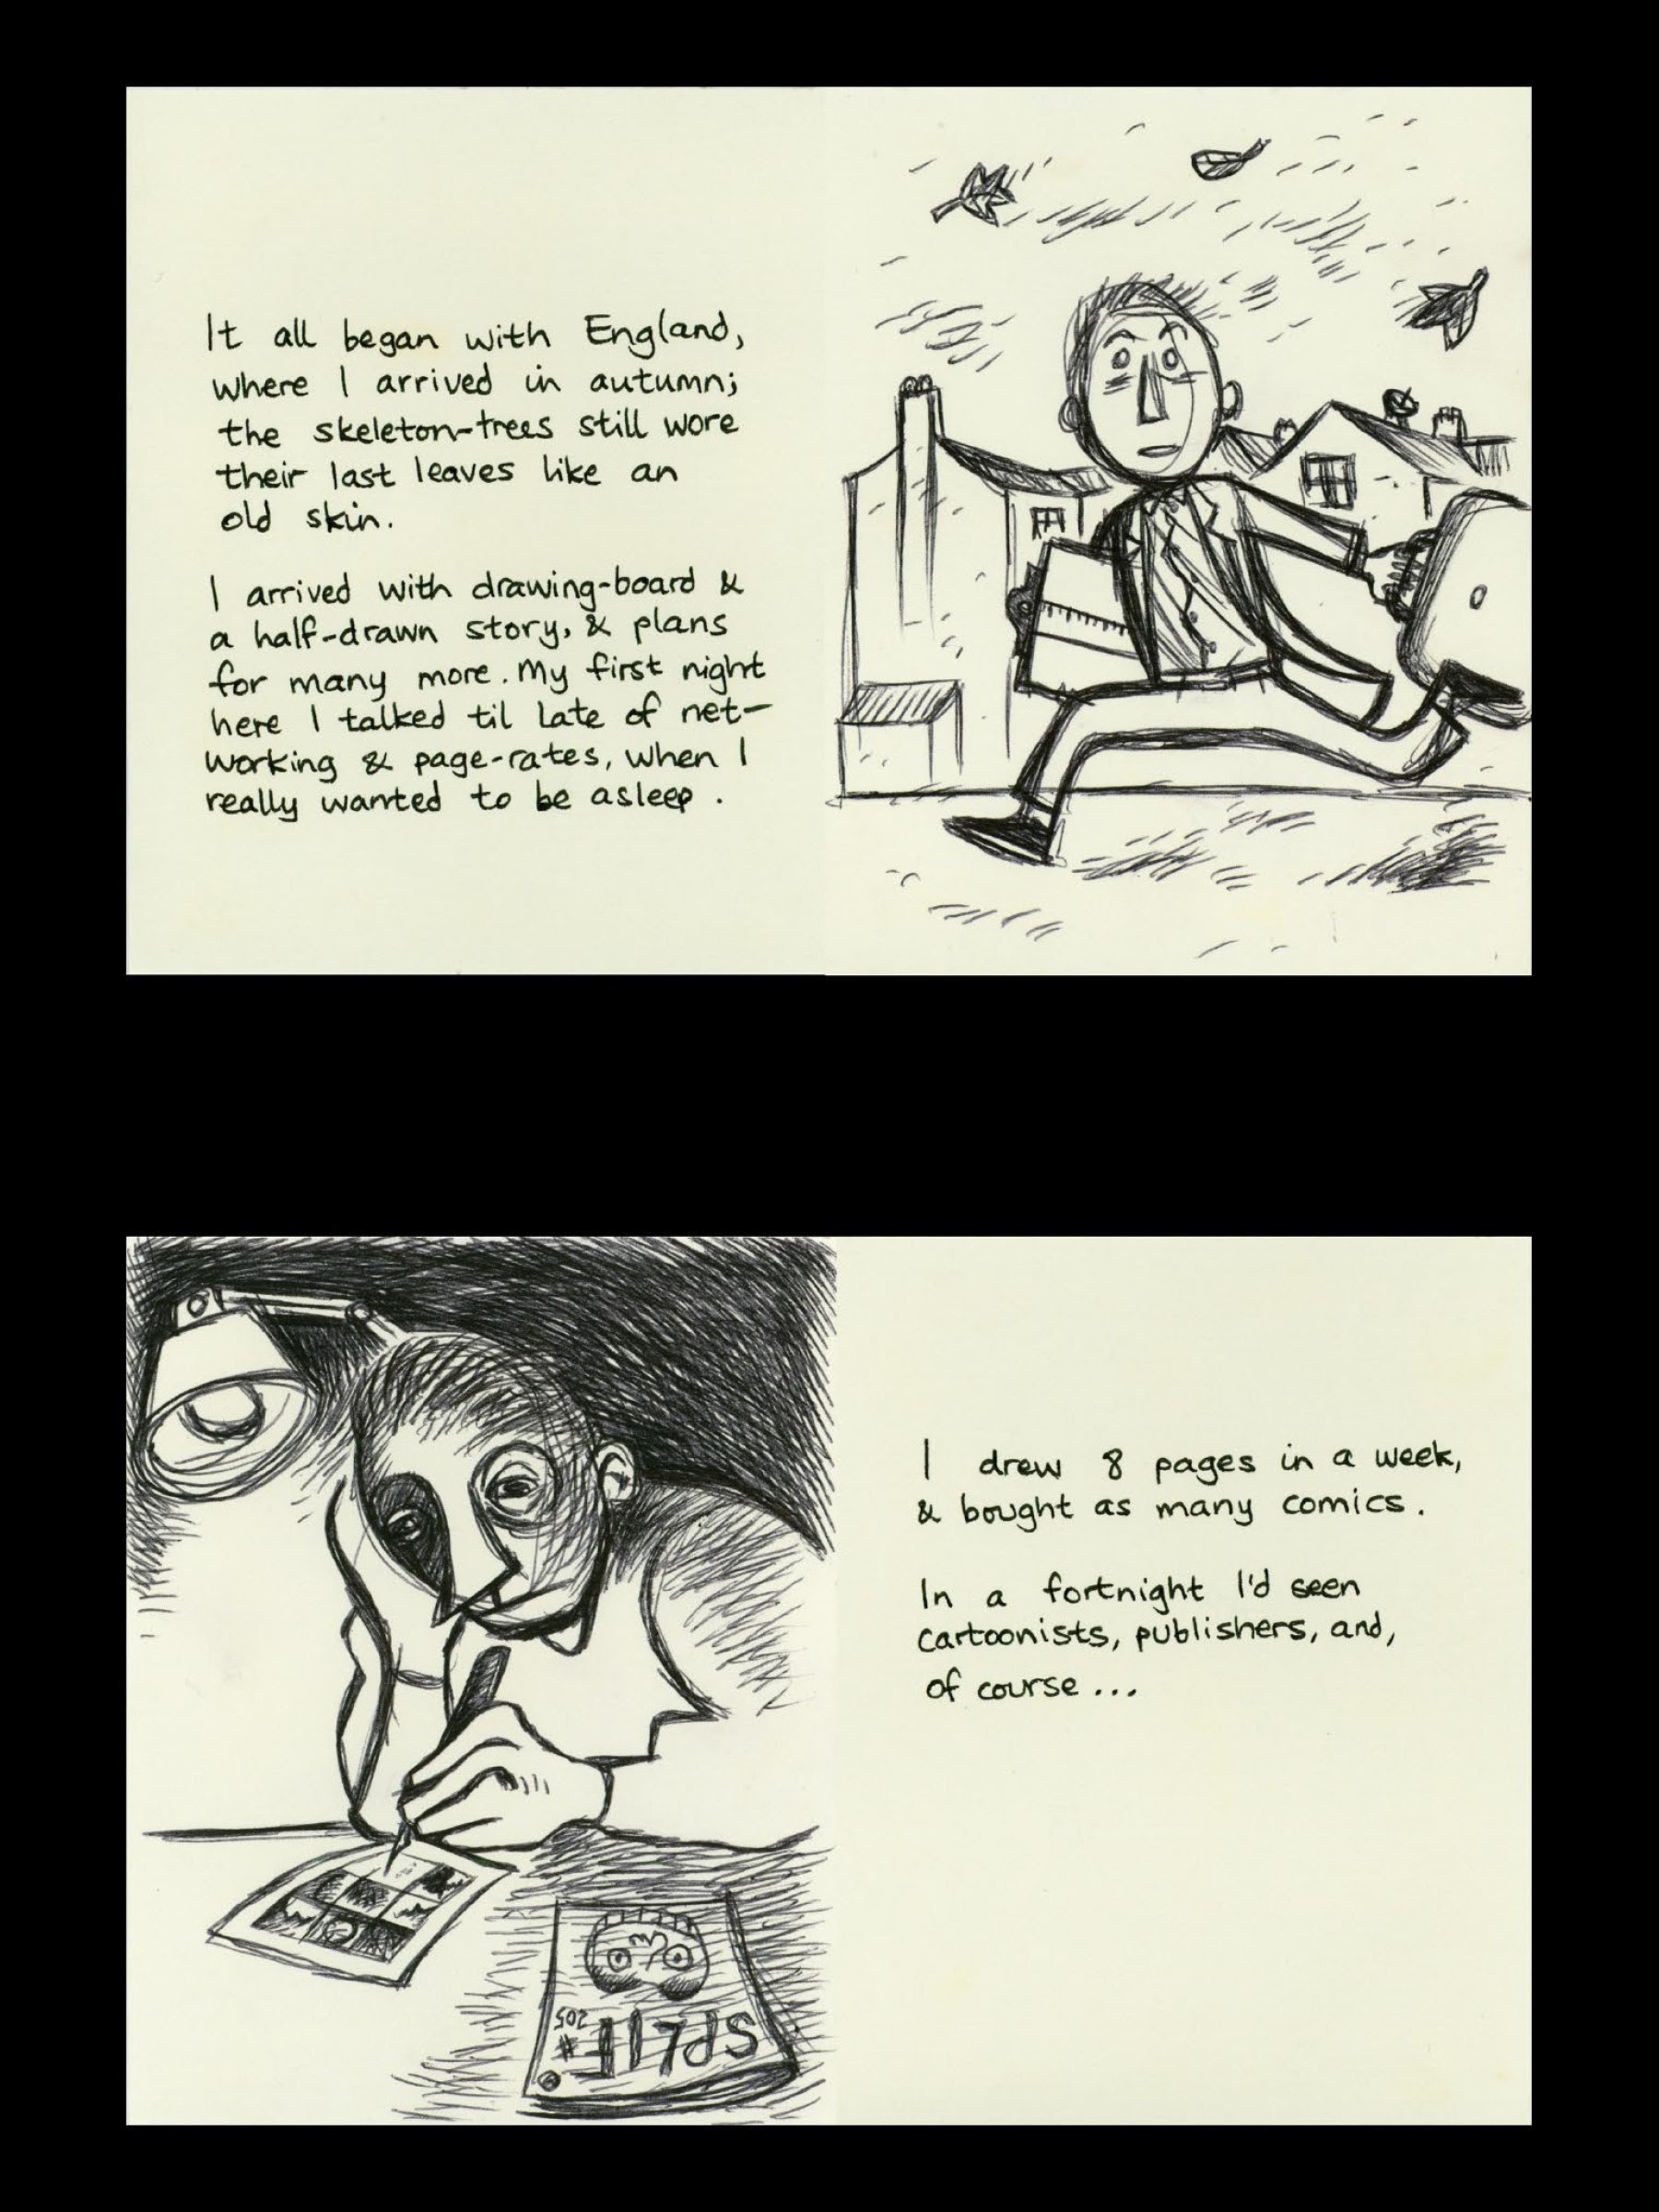 It all began with England,
where I arrived in autumn;
the skeleton-trees still wore
their last leaves like an
old skin.
I arrived with drawing-board &
a half-drawn story, & plans
for many more. My first night
here I talked til late of net-
working & page-rates, when I
really wanted to be asleep.
SPLIF
# 205
I drew 8 pages in a week,
& bought as many comics.
In a fortnight I'd seen
cartoonists, publishers, and,
of course...